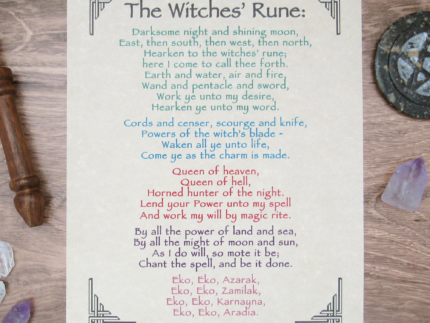 The Witches' Rune:
Darksome night and shining moon,
East, then south, then west, then north,
Hearken to the witches' rune;
here I come to call thee forth.
Earth and water, air and fire,
Wand and pentacle and sword,
Work ye unto my desire,
Hearken ye unto my word.
Cords and censer, scourge and knife,
Powers of the witch's blade -
Waken all ye unto life,
Come ye as the charm is made.
Queen of heaven,
Queen of hell,
Horned hunter of the night.
Lend your Power unto my spell
And work my will by magic rite.
By all the power of land and sea,
By all the might of moon and sun,
As I do will, so mote it be;
Chant the spell, and be it done.
Eko, Eko, Azarak,
Eko, Eko, Zamilak,
Eko, Eko, Karnayna,
Eko, Eko, Aradia.